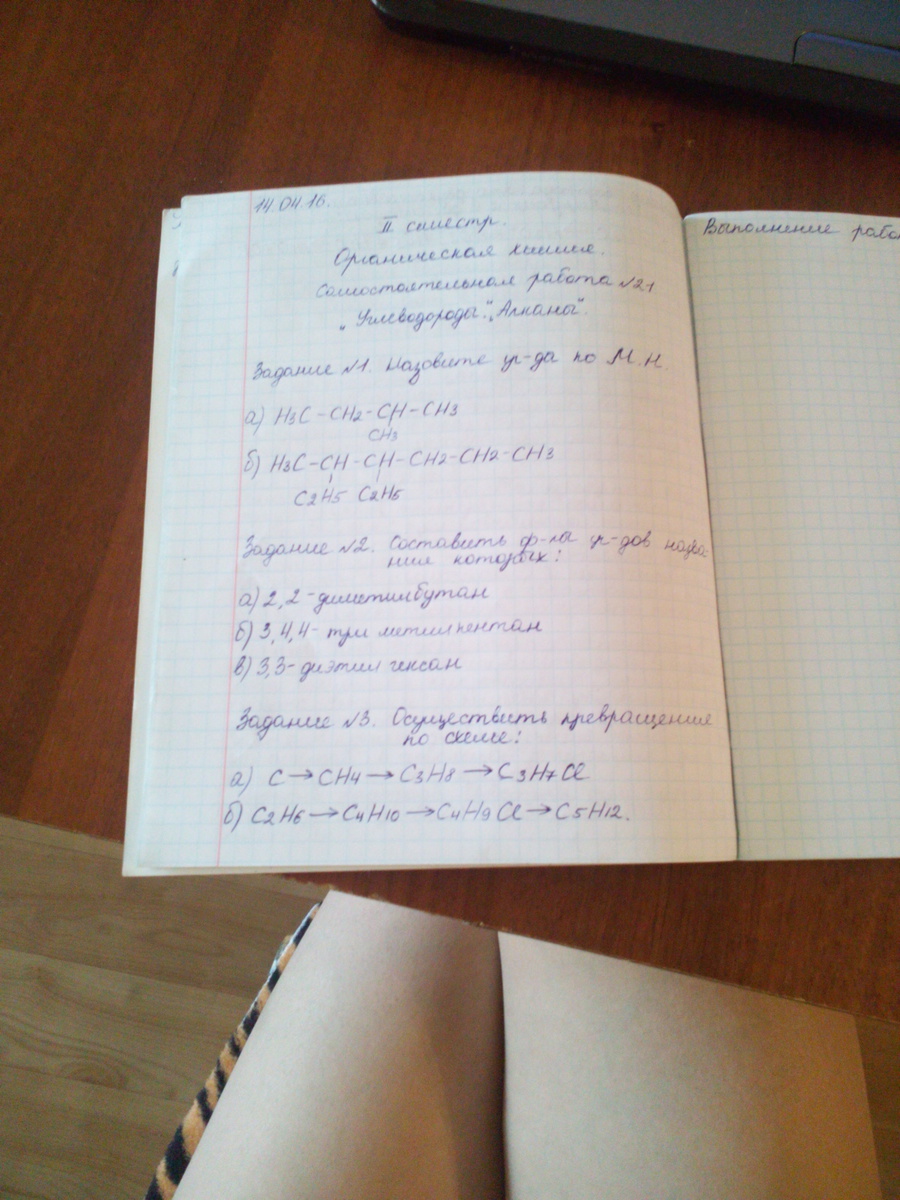 14.04.16.
II семестр.
Органическая химия.
Самостоятельная работа №21
„Углеводороды". „Алканы".
Задание №1. Назовите ур-да по М.Н.
а) H3C-CH2-CH-CH3
CH3
б) H3C-CH-CH-CH2-CH2-CH3
C2H5 C2H5
Задание №2. Составить ф-лы ур-дов назва-
ния которых:
а) 2,2-диметилбутан
б) 3,4,4-три метилпентан
в) 3,3-диэтил гексан
Задание №3. Осуществить превращение
по схеме:
а) C→CH4→C3H8→C3H7Cl
б) C2H6→C4H10→C4H9Cl→C5H12.
Выполнение